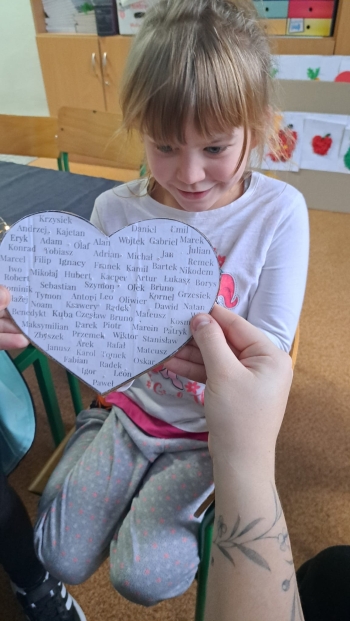 Krzysiek Daniel Emil
Andrzej Kajetan Wojtek Gabriel Marek
Eryk Adam Olaf Alan Julian
Konrad Tobiasz Adrian Michał Jan Remek
Marcel Filip Ignacy Franek Kamil Bartek Nikodem
Iwo Mikołaj Hubert Kacper Artur Łukasz Borys
Robert
Dominik Sebastian Szymon Olek Bruno
Tymon Antoni Leo Oliwier Kornel Grzesiek
Noam Ksawery Radek Dawid Natan
Benedykt Kuba Czesław Bruno Mateusz
Maksymilian Darek Piotr Marcin Patryk
Zbyszek Przemek Wiktor Stanisław
Janusz Arek Rafał Mateusz
Karol Tomek Oskar
Fabian Radek
Igor Leon
Paweł